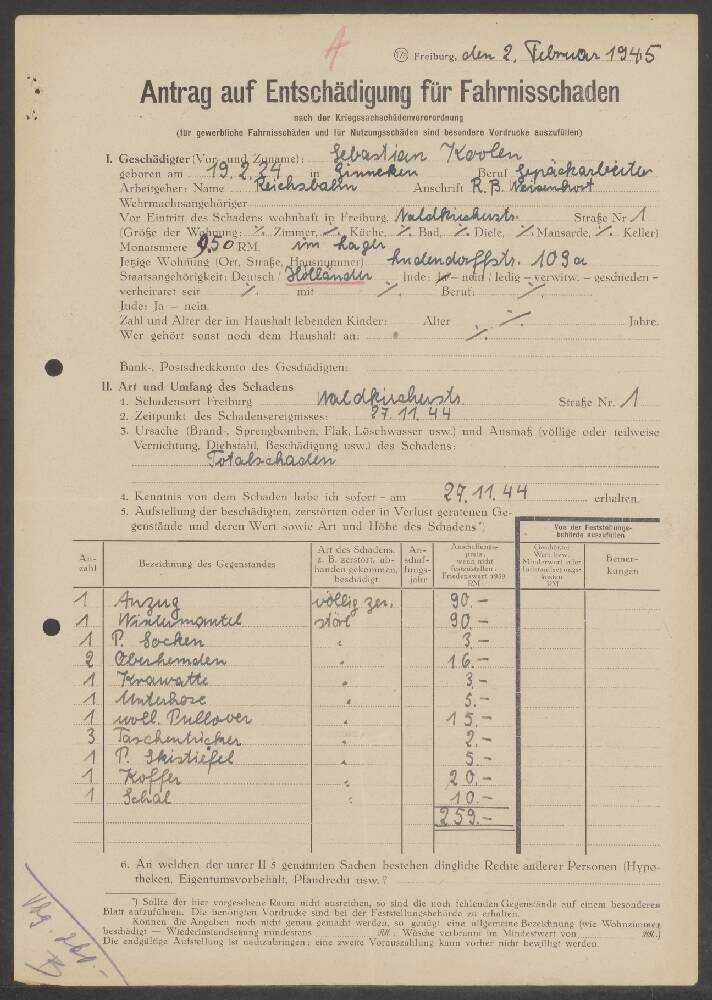 A
Freiburg, den 2. Februar 1945
Antrag auf Entschädigung für Fahrnisschaden
nach der Kriegssachschädenverordnung
(für gewerbliche Fahrnisschäden und für Nutzungsschäden sind besondere Vordrucke auszufüllen)
I. Geschädigter (Vor- und Zuname): Sebastian Koolen
geboren am 19.2.24 in Ginneken Beruf Gepäckarbeiter
Arbeitgeber: Name Reichsbahn Anschrift R.B.
Wehrmachtsangehöriger
Vor Eintritt des Schadens wohnhaft in Freiburg, Waldkircherstr. Straße Nr 1
(Größe der Wohnung: ·/. Zimmer, ·/. Küche, ·/. Bad, ·/. Diele, ·/. Mansarde, ·/. Keller)
Monatsmiete 9,50 RM. im Lager
Jetzige Wohnung (Ort, Straße, Hausnummer) Ludendorffstr. 109a
Staatsangehörigkeit: Deutsch / Holländer Jude: Ja – nein / ledig – verwitw. – geschieden –
verheiratet seit ·/. mit ·/. Beruf: ·/.
Jude: Ja – nein.
Zahl und Alter der im Haushalt lebenden Kinder: Alter ·/. Jahre.
Wer gehört sonst noch dem Haushalt an: ·/.
Bank-, Postscheckkonto des Geschädigten:
II. Art und Umfang des Schadens
1. Schadensort Freiburg Waldkircherstr. Straße Nr. 1
2. Zeitpunkt des Schadensereignisses: 27.11.44
3. Ursache (Brand-, Sprengbomben, Flak, Löschwasser usw.) und Ausmaß (völlige oder teilweise
Vernichtung, Diebstahl, Beschädigung usw.) des Schadens:
Totalschaden
4. Kenntnis von dem Schaden habe ich sofort – am 27.11.44 erhalten.
5. Aufstellung der beschädigten, zerstörten oder in Verlust geratenen Ge-
genstände und deren Wert sowie Art und Höhe des Schadens*)
Von der Feststellungs-
behörde auszufüllen
An-
zahl
Bezeichnung des Gegenstandes
Art des Schadens,
z. B. zerstört, ab-
handen gekommen,
beschädigt
An-
schaf-
fungs-
jahr
Anschaffungs-
preis,
wenn nicht
festzustellen:
Friedenswert 1939
RM
Bemer-
kungen
1 Anzug völlig zer- 90.–
1 Wintermantel stört 90.–
1 P. Socken " 3.–
2 Oberhemden " 16.–
1 Krawatte " 3.–
1 Unterhose " 5.–
1 woll. Pullover " 15.–
3 Taschentücher " 2.–
1 P. Skistiefel " 5.–
1 Koffer " 20.–
1 Schal " 10.–
259.–
6. An welchen der unter II 5 genannten Sachen bestehen dingliche Rechte anderer Personen (Hypo-
theken, Eigentumsvorbehalt, Pfandrecht usw.?
*) Sollte der hier vorgesehene Raum nicht ausreichen, so sind die noch fehlenden Gegenstände auf einem besonderen
Blatt aufzuführen. Die benötigten Vordrucke sind bei der Feststellungsbehörde zu erhalten.
Können die Angaben noch nicht genau gemacht werden, so genügt eine allgemeine Bezeichnung (wie Wohnzimmer
beschädigt — Wiederinstandsetzung mindestens RM.; Wäsche verbrannt im Mindestwert von RM.)
Die endgültige Aufstellung ist nachzubringen; eine zweite Vorauszahlung kann vorher nicht bewilligt werden.